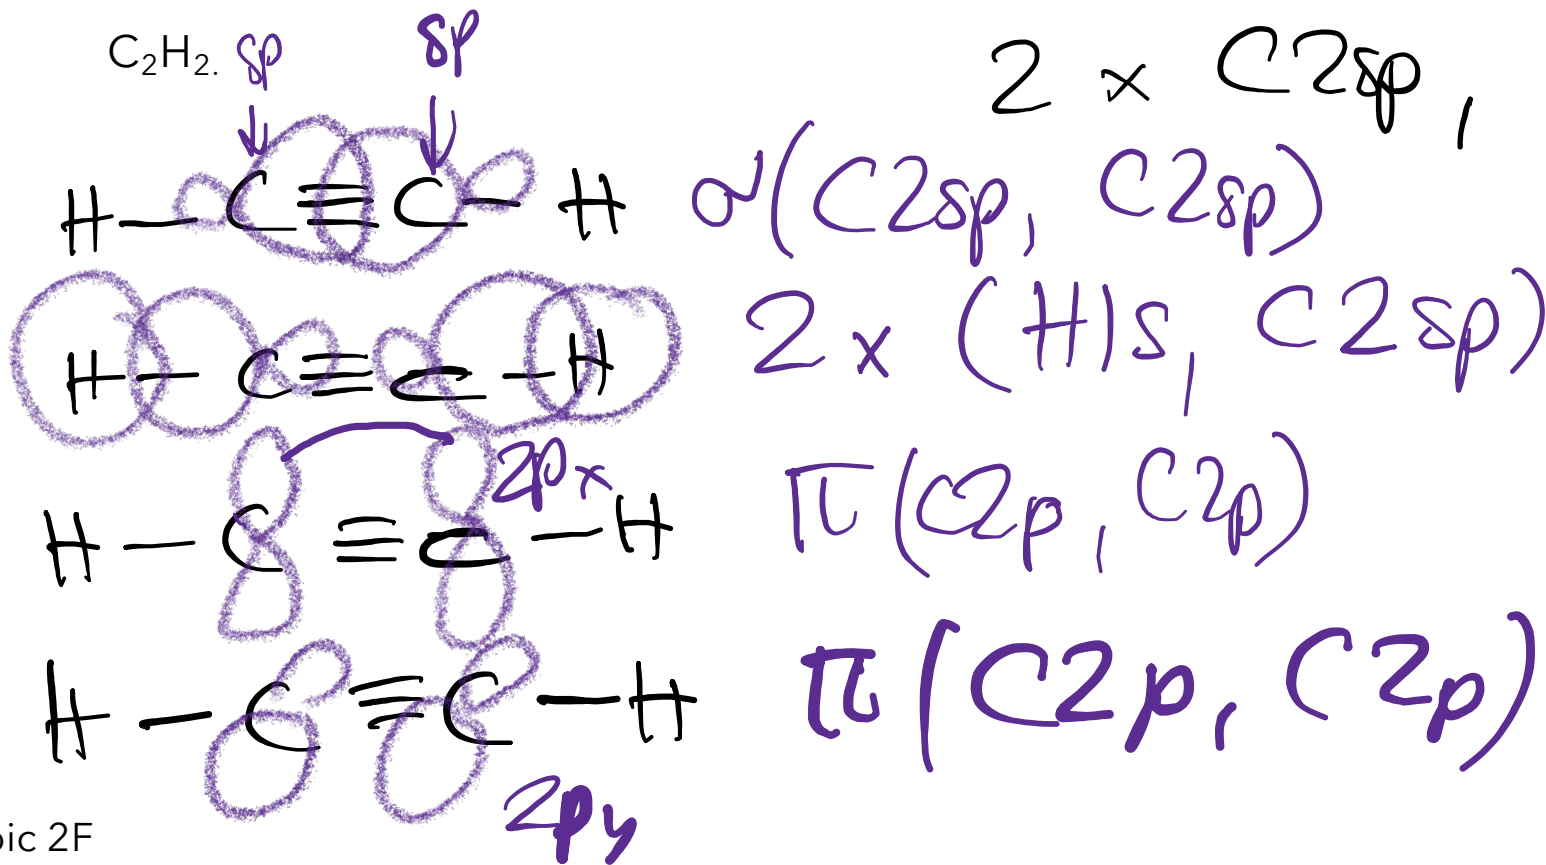 C₂H₂. sp sp
2 x C2sp,
H—C≡C—H
σ(C2sp, C2sp)
H—C≡C—H
2 x (H1s, C2sp)
2px
H—C≡C—H
π(C2p, C2p)
H—C≡C—H
π(C2p, C2p)
2py
pic 2F